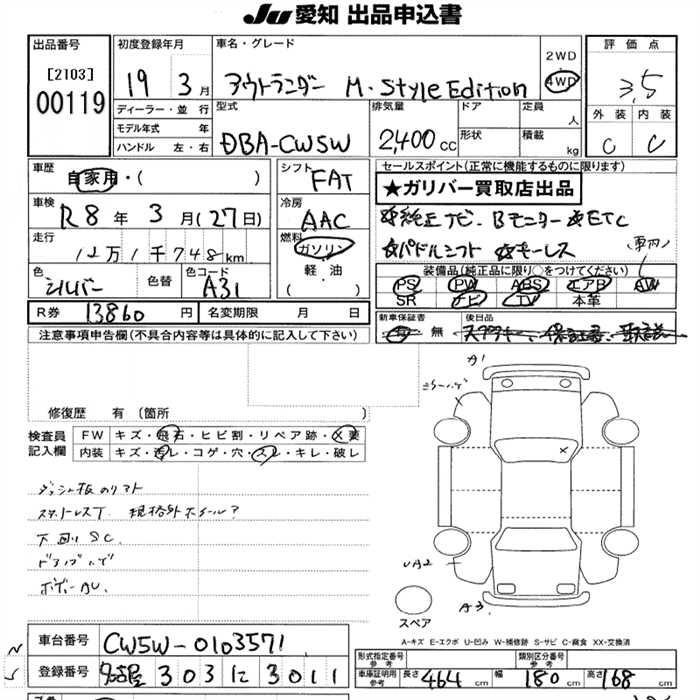 Ju 愛知 出品申込書
出品番号
[2103]
00119
初度登録年月
19 3月
ディーラー・並行
モデル年式 年
ハンドル 左・右
車名・グレード
アウトランダー M・Style Edition
2WD
4WD
型式
DBA-CW5W
排気量
2,400 cc
ドア
形状
定員
人
積載
kg
評価点
3,5
外装 内装
C C
車歴
自家用・( )
車検
R8年 3月(27日)
走行
12万1千748km
色
シルバー
色替
色コード
A31
シフト
FAT
冷房
AAC
燃料
ガソリン
軽・油
( )
セールスポイント(正常に機能するものに限ります)
★ガリバー買取店出品
☆純正ナビ・Bモニター ☆ETC
☆パドルシフト ☆キーレス
(車内)
装備品(純正品に限り○をつけてください)
PS PW ABS エアB AW
SR ナビ TV 本革
R券 13860円
名変期限 月 日
新車保証書
有 無
後日品
注意事項申告欄(不具合内容等は具体的に記入して下さい)
修復歴 有(箇所 )
検査員
記入欄
FW キズ・飛石・ヒビ割・リペア跡・X要
内装 キズ・汚レ・コゲ・穴・スレ・キレ・破レ
スタッドレスT 規格外ホイール?
下回りSC
A1
X
UA2
A3
スペア
A-キズ E-エクボ U-凹み W-補修跡 S-サビ C-腐食 XX-交換済
車台番号
CW5W-0103571
登録番号
名古屋 303 に 3011
型式指定番号
参考
類別区分番号
参考
車庫証明用
参考
長さ 464cm
幅 180cm
高さ 168cm